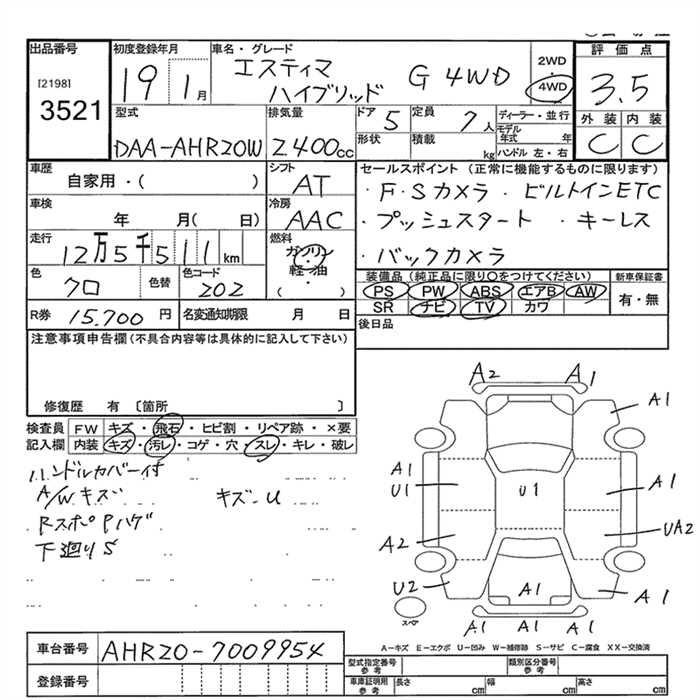 出品番号
[2198]
3521
初度登録年月
19 1月
車名・グレード
エスティマ
ハイブリッド G 4WD
2WD
・
4WD
評価点
3.5
外装 内装
C C
型式
DAA-AHR20W
排気量
2400cc
ドア 5
定員 7人
形状
積載 kg
ディーラー・並行
モデル年式 年
ハンドル 左・右
車歴
自家用・( )
シフト
AT
車検
年 月( 日)
冷房
AAC
走行
12万5千511km
燃料
ガソリン
軽油
( ・ )
色
クロ
色替
色コード
202
R券 15.700円
名変通知期限 月 日
セールスポイント (正常に機能するものに限ります)
・F・Sカメラ ・ビルトインETC
・プッシュスタート ・キーレス
・バックカメラ
装備品(純正品に限り○をつけてください)
PS PW ABS エアB AW
SR ナビ TV カワ
新車保証書
有・無
後日品
注意事項申告欄(不具合内容等は具体的に記入して下さい)
修復歴 有 〔箇所 〕
検査員記入欄
FW キズ・飛石・ヒビ割・リペア跡・×要
内装 キズ・汚レ・コゲ・穴・スレ・キレ・破レ
ハンドルカバー付
A/Wキズ キズ-U
RスポPハゲ
下廻りS
A2 A1
A1
A1
U1
U1
A1
A2
UA2
U2
A1
A1
A1 A1 A1
スペア
A-キズ E-エクボ U-凹み W-補修跡 S-サビ C-腐食 XX-交換済
車台番号 AHR20-7009954
登録番号
型式指定番号
参考
類別区分番号
参考
車庫証明用
参考
長さ cm 幅 cm 高さ cm